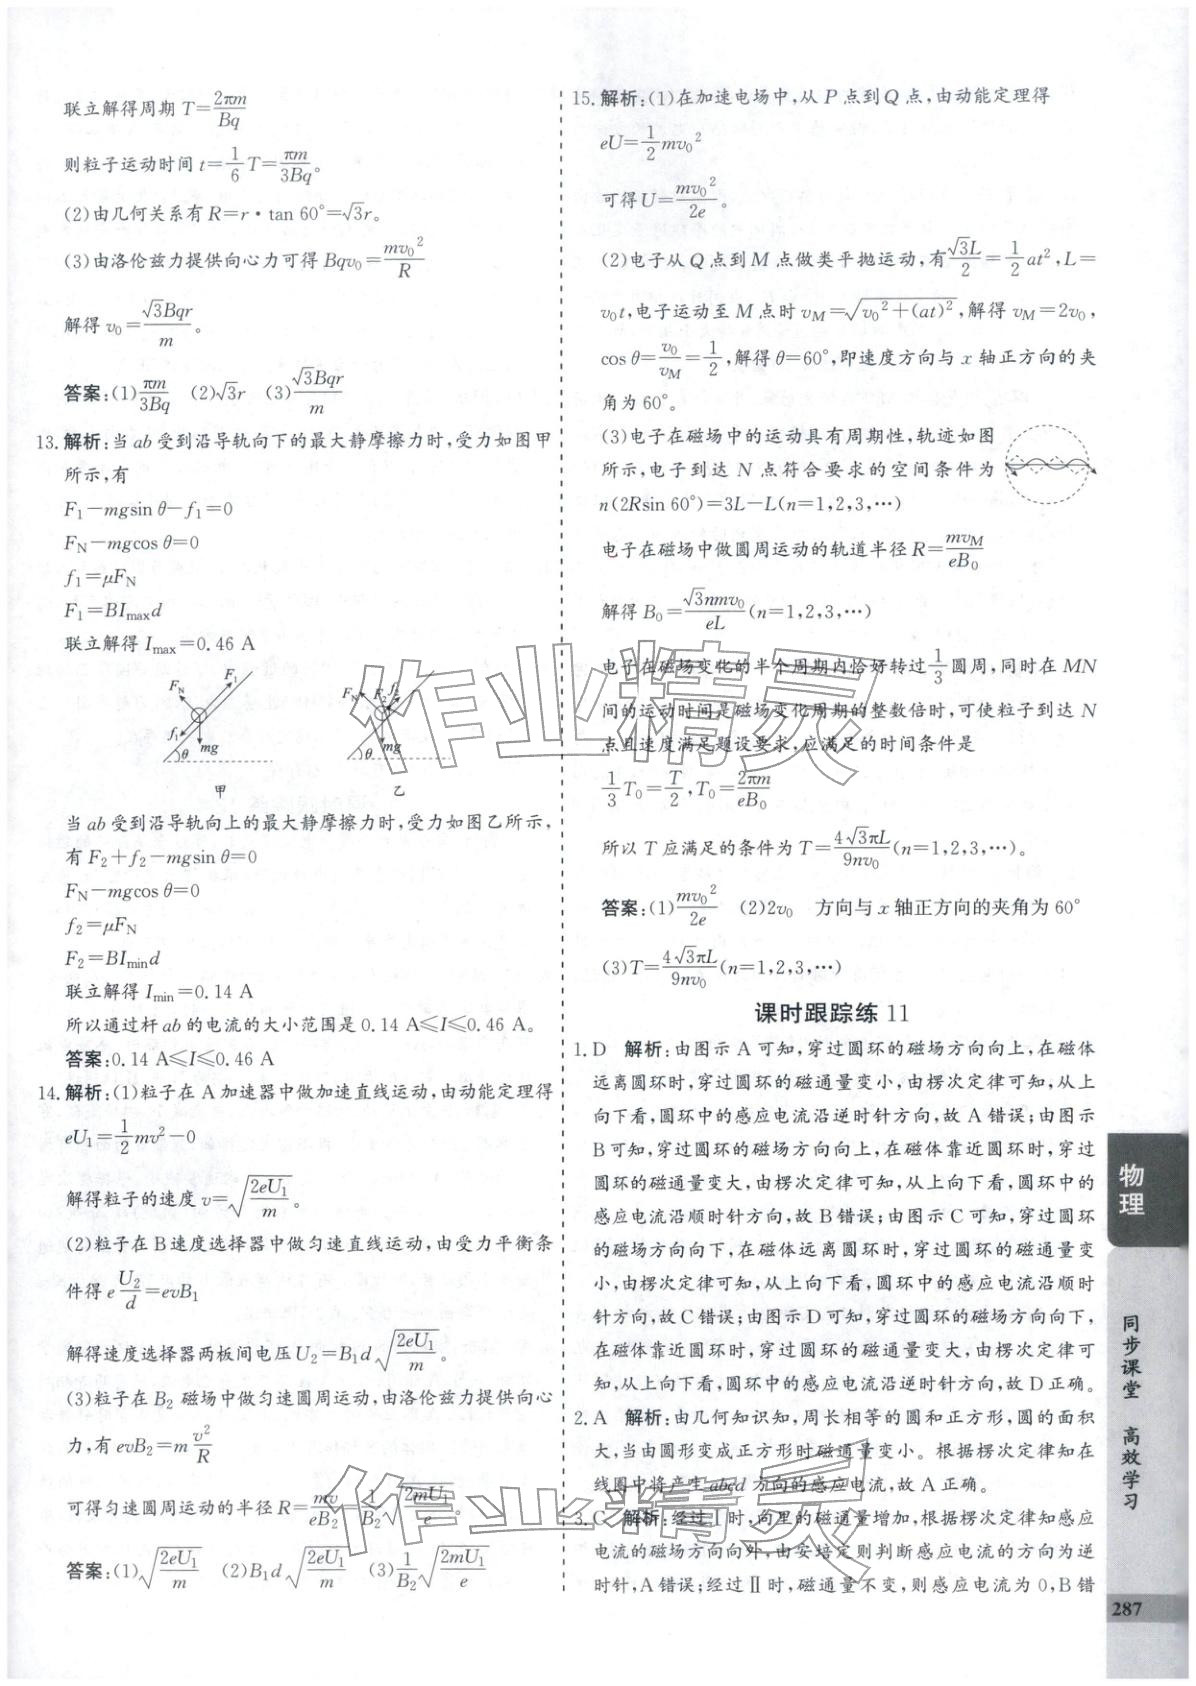 联立解得周期 T=2πm/Bq
则粒子运动时间 t=1/6 T=πm/3Bq。
(2)由几何关系有 R=r·tan 60°=√3r。
(3)由洛伦兹力提供向心力可得 Bqv₀=mv₀²/R
解得 v₀=√3Bqr/m。
答案:(1)πm/3Bq (2)√3r (3)√3Bqr/m
13.解析:当 ab 受到沿导轨向下的最大静摩擦力时,受力如图甲
所示,有
F₁−mgsin θ−f₁=0
F_N−mgcos θ=0
f₁=μF_N
F₁=BI_max d
联立解得 I_max=0.46 A
F_N F₁ f₁ mg θ 甲
F_N F₂ f₂ mg θ 乙
当 ab 受到沿导轨向上的最大静摩擦力时,受力如图乙所示,
有 F₂+f₂−mgsin θ=0
F_N−mgcos θ=0
f₂=μF_N
F₂=BI_min d
联立解得 I_min=0.14 A
所以通过杆 ab 的电流的大小范围是 0.14 A≤I≤0.46 A。
答案:0.14 A≤I≤0.46 A
14.解析:(1)粒子在 A 加速器中做加速直线运动,由动能定理得
eU₁=1/2 mv²−0
解得粒子的速度 v=√(2eU₁/m)。
(2)粒子在 B 速度选择器中做匀速直线运动,由受力平衡条
件得 e U₂/d=evB₁
解得速度选择器两板间电压 U₂=B₁d√(2eU₁/m)。
(3)粒子在 B₂ 磁场中做匀速圆周运动,由洛伦兹力提供向心
力,有 evB₂=m v²/R
可得匀速圆周运动的半径 R=mv/eB₂=1/B₂ √(2mU₁/e)。
答案:(1)√(2eU₁/m) (2)B₁d√(2eU₁/m) (3)1/B₂ √(2mU₁/e)
15.解析:(1)在加速电场中,从 P 点到 Q 点,由动能定理得
eU=1/2 mv₀²
可得 U=mv₀²/2e。
(2)电子从 Q 点到 M 点做类平抛运动,有√3L/2=1/2 at²,L=
v₀t,电子运动至 M 点时 v_M=√(v₀²+(at)²),解得 v_M=2v₀,
cos θ=v₀/v_M=1/2,解得 θ=60°,即速度方向与 x 轴正方向的夹
角为 60°。
(3)电子在磁场中的运动具有周期性,轨迹如图
所示,电子到达 N 点符合要求的空间条件为
n(2Rsin 60°)=3L−L(n=1,2,3,…)
电子在磁场中做圆周运动的轨道半径 R=mv_M/eB₀
解得 B₀=√3nmv₀/eL(n=1,2,3,…)
电子在磁场变化的半个周期内恰好转过1/3圆周,同时在 MN
间的运动时间是磁场变化周期的整数倍时,可使粒子到达 N
点且速度满足题设要求,应满足的时间条件是
1/3 T₀=T/2,T₀=2πm/eB₀
所以 T 应满足的条件为 T=4√3πL/9nv₀(n=1,2,3,…)。
答案:(1)mv₀²/2e (2)2v₀ 方向与 x 轴正方向的夹角为 60°
(3)T=4√3πL/9nv₀(n=1,2,3,…)
课时跟踪练 11
1.D 解析:由图示 A 可知,穿过圆环的磁场方向向上,在磁体
远离圆环时,穿过圆环的磁通量变小,由楞次定律可知,从上
向下看,圆环中的感应电流沿逆时针方向,故 A 错误;由图示
B 可知,穿过圆环的磁场方向向上,在磁体靠近圆环时,穿过
圆环的磁通量变大,由楞次定律可知,从上向下看,圆环中的
感应电流沿顺时针方向,故 B 错误;由图示 C 可知,穿过圆环
的磁场方向向下,在磁体远离圆环时,穿过圆环的磁通量变
小,由楞次定律可知,从上向下看,圆环中的感应电流沿顺时
针方向,故 C 错误;由图示 D 可知,穿过圆环的磁场方向向下,
在磁体靠近圆环时,穿过圆环的磁通量变大,由楞次定律可
知,从上向下看,圆环中的感应电流沿逆时针方向,故 D 正确。
2.A 解析:由几何知识知,周长相等的圆和正方形,圆的面积
大,当由圆形变成正方形时磁通量变小。根据楞次定律知在
线圈中将产生 abcd 方向的感应电流,故 A 正确。
3.C 解析:经过Ⅰ时,向里的磁通量增加,由楞次定律知感应
电流的磁场方向向外,由安培定则判断感应电流的方向为逆
时针,A 错误;经过Ⅱ时,磁通量不变,则感应电流为 0,B 错
物理
同步课堂 高效学习
287
作业精灵
作业精灵